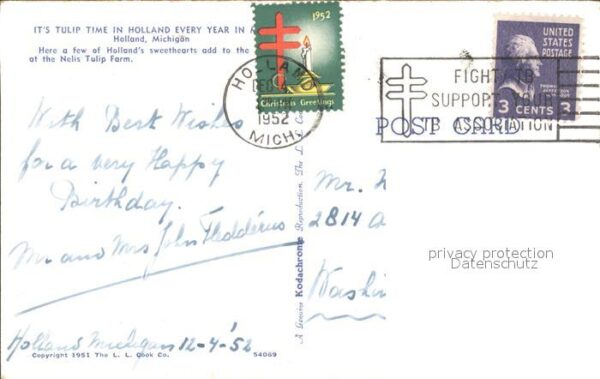 IT'S TULIP TIME IN HOLLAND EVERY YEAR IN M
Holland, Michigan
Here a few of Holland's sweethearts add to the
at the Nelis Tulip Farm.
1952
Christmas Greetings
HOLLAND
DEC
1952
MICH.
UNITED
STATES
POSTAGE
THOMAS
JEFFERSON
3 CENTS 3
FIGHT TB
SUPPORT YOUR
TB ASSOCIATION
POST CARD
With Best Wishes
for a very Happy
Birthday.
Mr and Mrs John Fledderus
Holland Michigan 12-4-'52
Copyright 1951 The L. L. Cook Co.
54069
A Genuine Kodachrome Reproduction, The L. L. Co
Mr.
2814
Washin
privacy protection
Datenschutz